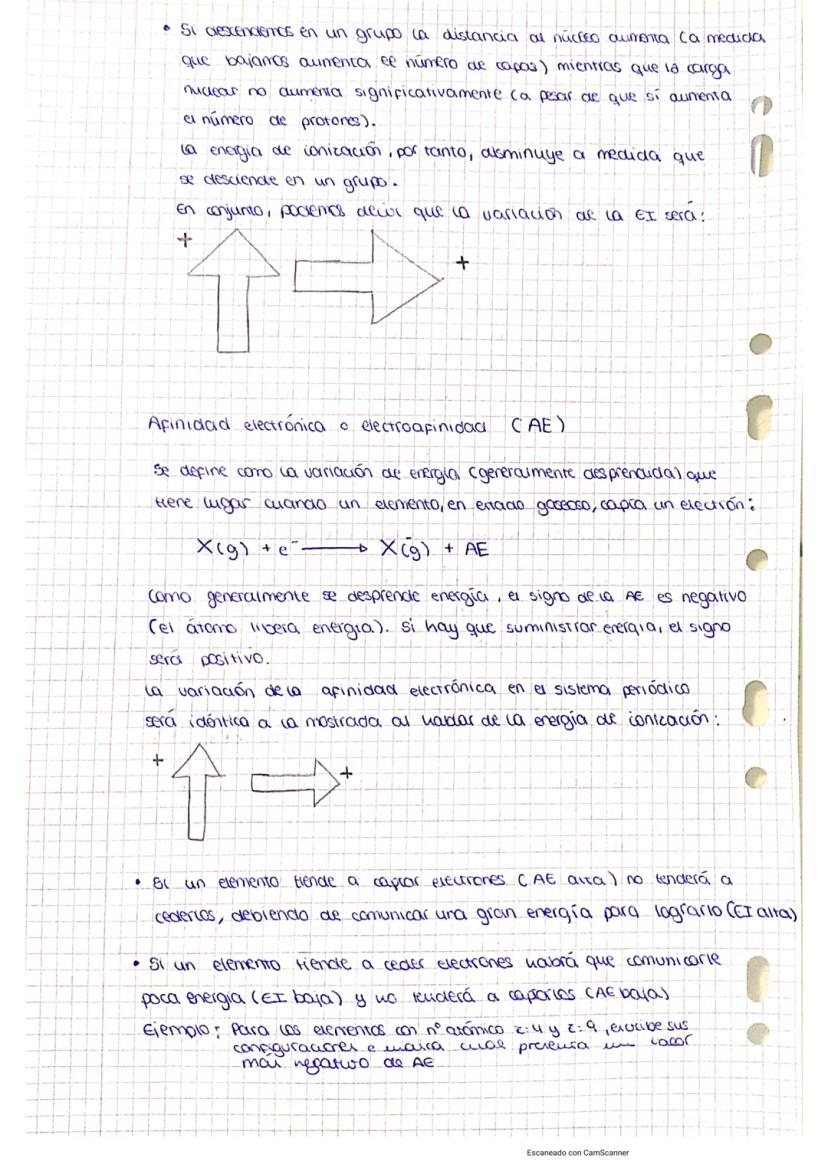 • Si descendemos en un grupo la distancia al núcleo aumenta (a medida
que bajamos aumenta el número de capas) mientras que la carga
nuclear no aumenta significativamente (a pesar de que sí aumenta
el número de protones).
La energía de ionización, por tanto, disminuye a medida que
se desciende en un grupo.
En conjunto, podemos decir que la variación de la EI será:
+
+
Afinidad electrónica o electroafinidad (AE)
Se define como la variación de energía (generalmente desprendida) que
tiene lugar cuando un elemento, en estado gaseoso, capta un electrón:
X(g) + e⁻ → X⁻(g) + AE
Como generalmente se desprende energía, el signo de la AE es negativo
(el átomo libera energía). Si hay que suministrar energía, el signo
será positivo.
La variación de la afinidad electrónica en el sistema periódico
será idéntica a la mostrada al hablar de la energía de ionización:
+
+
• Si un elemento tiende a captar electrones (AE alta) no tenderá a
cederlos, debiendo de comunicar una gran energía para lograrlo (EI alta)
• Si un elemento tiende a ceder electrones habrá que comunicarle
poca energía (EI baja) y no tenderá a captarlos (AE baja)
Ejemplo: Para los elementos con nº atómico z:4 y z:9, escribe sus
configuraciones e indica cual presenta un valor
más negativo de AE
Escaneado con CamScanner